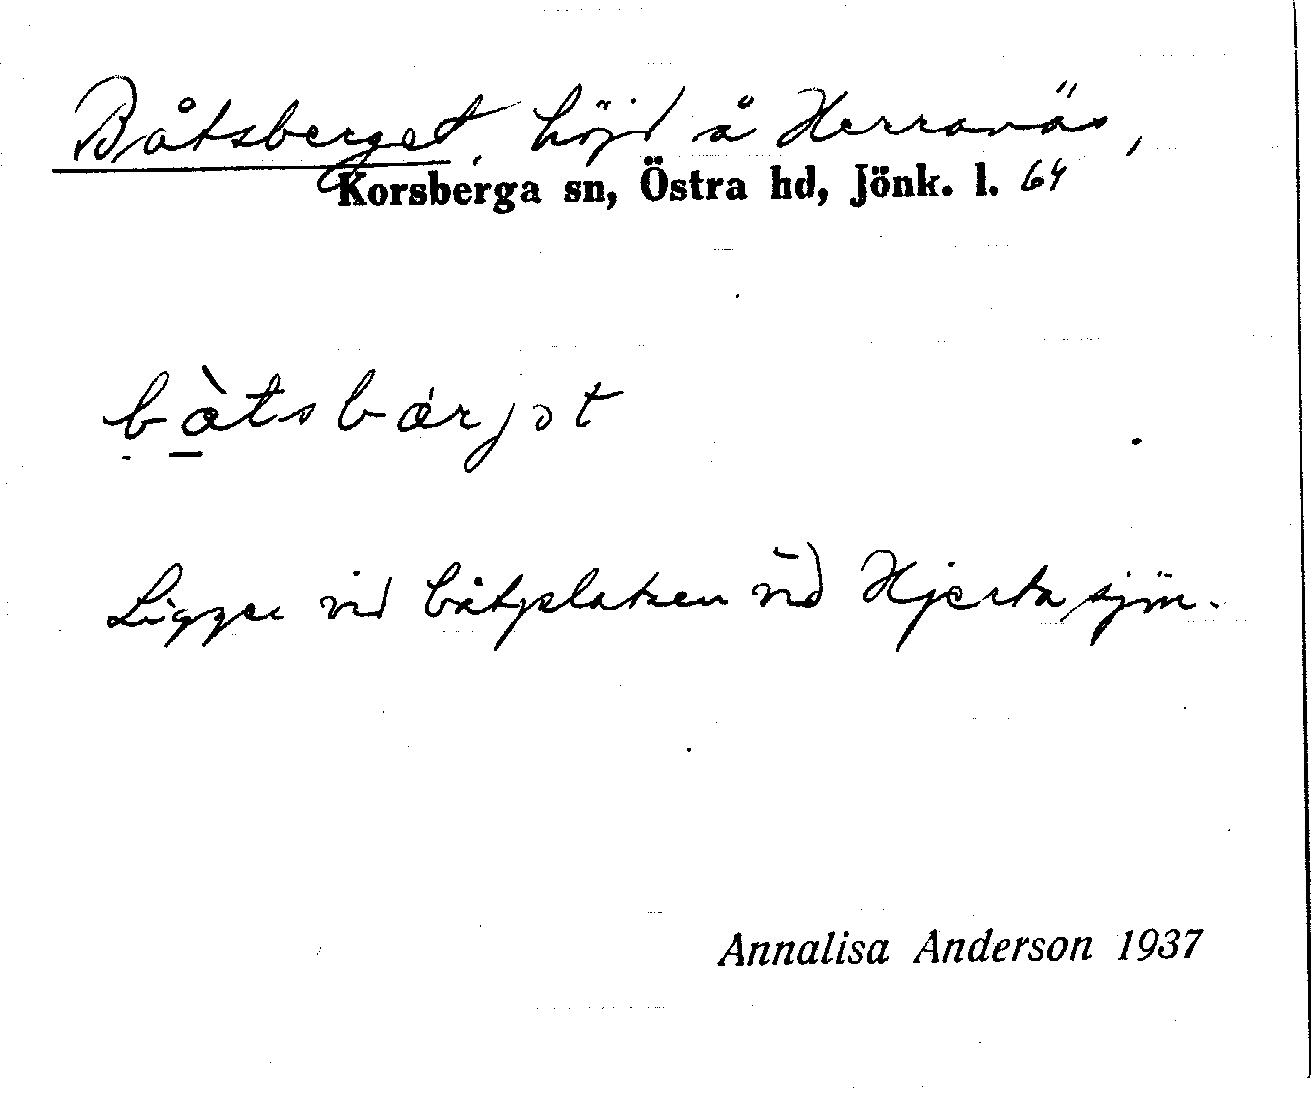 Båtsberget, höjd å Herranäs,
Korsberga sn, Östra hd, Jönk. l. 64
bàtsbárjət
Ligger vid båtplatsen vid Hjertasjön.
Annalisa Anderson 1937